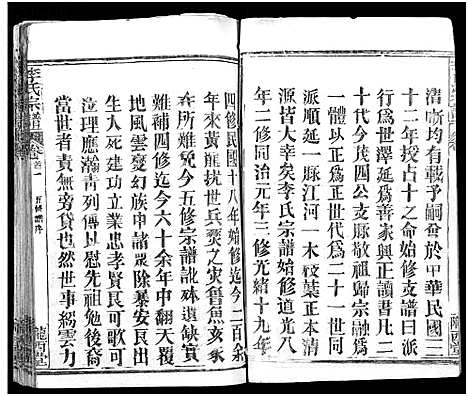 清晰均有載予嗣僉於中華民國三
十二年授占十二命始修支譜曰派
行為世澤延為善家興正讀書比二
十代今茂四公支縣敬祖歸宗融為
一體以正為正世代為二十一世同
派順延一脉江河一木枝葉正本清
源皆大幸矣李氏宗譜始修道光
年二修同治元年三修光緒十九年
四修民國十八年始修迄今二百余
年來黃龍扰世兵燹之灾舊魚亥豕
所难免今五修宗譜訛誅遺缺實
難補四修迄今六十余年中翻天覆
地風雲变幻族中諸眾除暴安良出
生人死建功立業忠孝賢良可歌可
當世者責無旁貸也然世事纷云力
李氏宗譜
卷首一
五修譜序
隴西堂
隴西堂